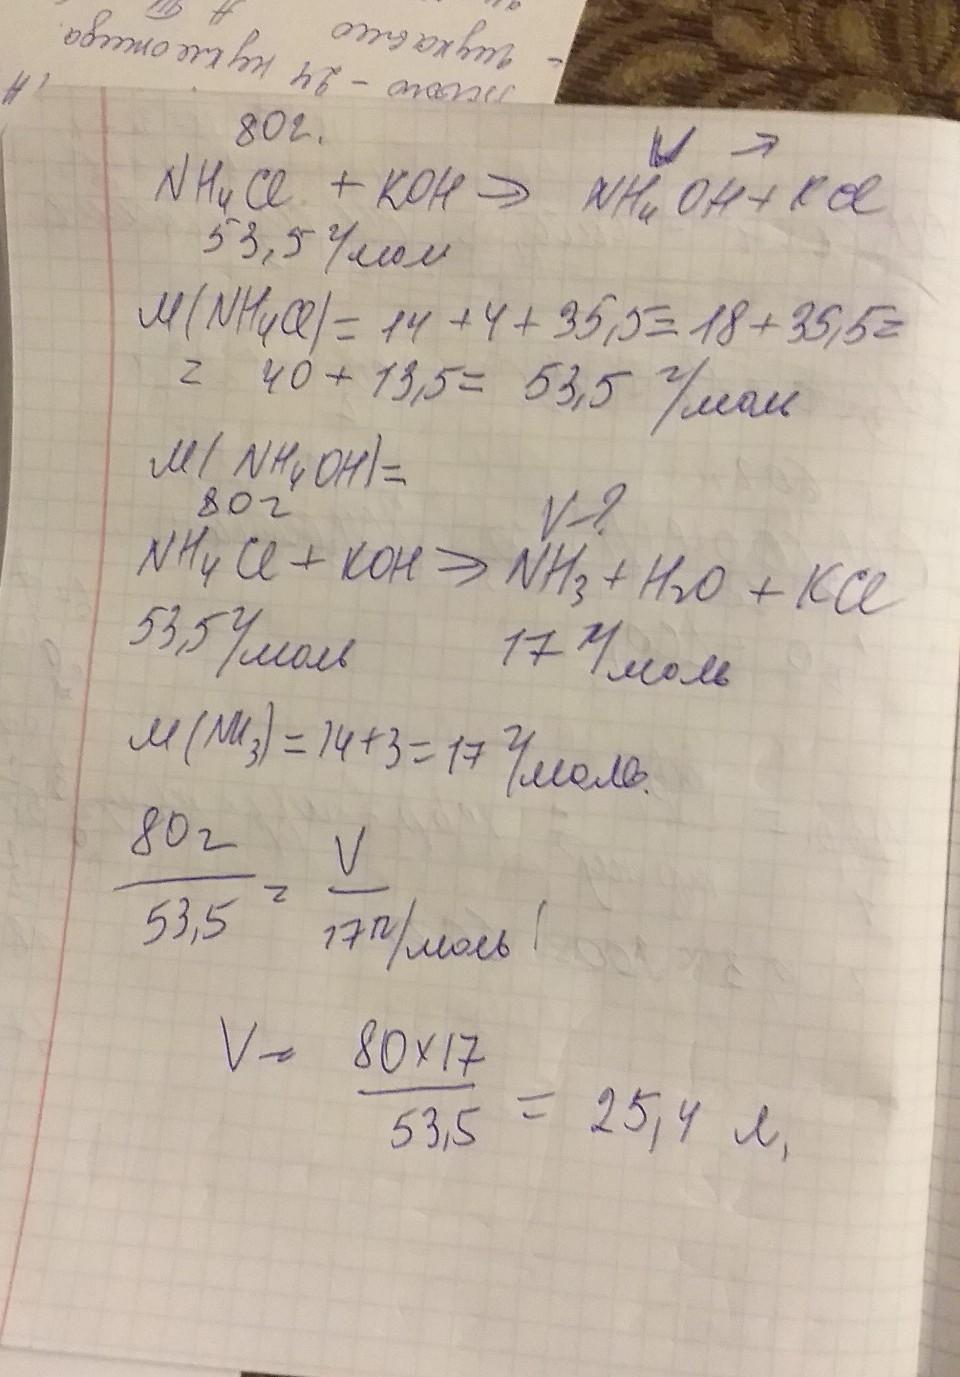 - 24 нуклеотида
80 г.
V →
NH4Cl + KOH => NH4OH + KCl
53,5 г/мол
M(NH4Cl) = 14 + 4 + 35,5 = 18 + 35,5 =
= 40 + 13,5 = 53,5 г/моль
M(NH4OH) =
80 г
V-?
NH4Cl + KOH => NH3 + H2O + KCl
53,5 г/моль 17 г/моль
M(NH3) = 14 + 3 = 17 г/моль.
80 г / 53,5 = V / 17 г/моль
V = 80 x 17 / 53,5 = 25,4 л,